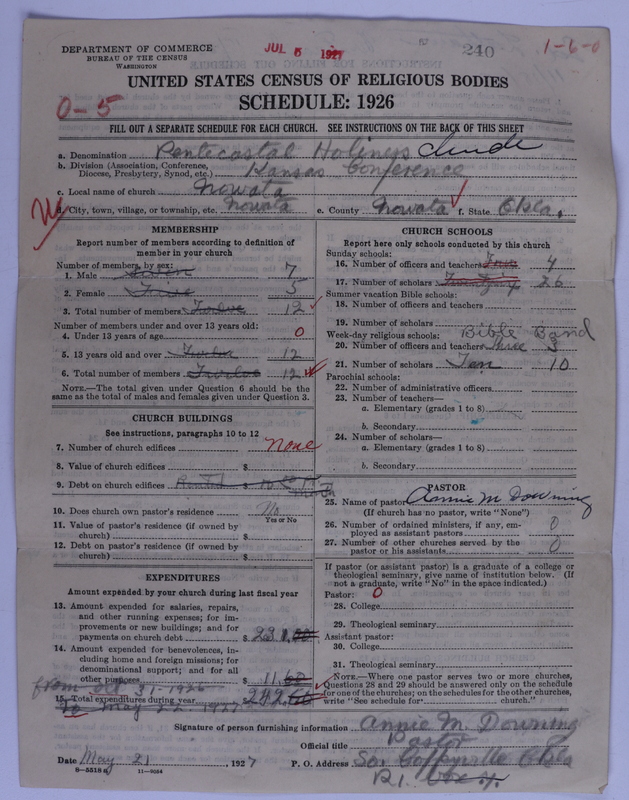 DEPARTMENT OF COMMERCE
BUREAU OF THE CENSUS
WASHINGTON
JUL 5 1927
240
1-6-0
UNITED STATES CENSUS OF RELIGIOUS BODIES
SCHEDULE: 1926
0-5
FILL OUT A SEPARATE SCHEDULE FOR EACH CHURCH. SEE INSTRUCTIONS ON THE BACK OF THIS SHEET
a. Denomination Pentecostal Holiness Church
b. Division (Association, Conference, Diocese, Presbytery, Synod, etc.) Kansas Conference
c. Local name of church Nowata
d. City, town, village, or township, etc. Nowata e. County Nowata f. State Okla.
MEMBERSHIP
Report number of members according to definition of
member in your church
Number of members, by sex:
1. Male Seven 7
2. Female Five 5
3. Total number of members Twelve 12
Number of members under and over 13 years old:
4. Under 13 years of age 0
5. 13 years old and over Twelve 12
6. Total number of members Twelve 12
NOTE.—The total given under Question 6 should be
same as the total of males and females given under Question 3.
CHURCH BUILDINGS
See instructions, paragraphs 10 to 12
7. Number of church edifices None
8. Value of church edifices $
9. Debt on church edifices $
10. Does church own pastor's residence No
Yes or No
11. Value of pastor's residence (if owned by
church) $
12. Debt on pastor's residence (if owned by
church) $
EXPENDITURES
Amount expended by your church during last fiscal year
13. Amount expended for salaries, repairs,
and other running expenses; for im-
provements or new buildings; and for
payments on church debt $ 231.00
14. Amount expended for benevolences, in-
cluding home and foreign missions; for
denominational support; and for all
other purposes $ 11.00
from Oct 31-1926
15. Total expenditures during year 242.00
to May 22 1927
CHURCH SCHOOLS
Report here only schools conducted by this church
Sunday schools:
16. Number of officers and teachers Four 4
17. Number of scholars 26
Summer vacation Bible schools:
18. Number of officers and teachers
19. Number of scholars
Week-day religious schools: Bible Band
20. Number of officers and teachers Three 3
21. Number of scholars Ten 10
Parochial schools:
22. Number of administrative officers
23. Number of teachers—
a. Elementary (grades 1 to 8)
b. Secondary
24. Number of scholars—
a. Elementary (grades 1 to 8)
b. Secondary
PASTOR
25. Name of pastor Annie M Downing
(If church has no pastor, write "None")
26. Number of ordained ministers, if any, em-
ployed as assistant pastors 0
27. Number of other churches served by the
pastor or his assistants 0
If pastor (or assistant pastor) is a graduate of a college or
theological seminary, give name of institution below. (If
not a graduate, write "No" in the space indicated.)
Pastor: 0
28. College
29. Theological seminary
Assistant pastor:
30. College
31. Theological seminary
NOTE.—Where one pastor serves two or more churches,
Questions 28 and 29 should be answered only on the schedule
for one of the churches; on the schedules for the other churches,
write "See schedule for church."
Signature of person furnishing information Annie M. Downing
Official title Pastor
Date May 21, 1927 P. O. Address So. Coffeyville Okla
8-5518a 11-9054
R.1. Box